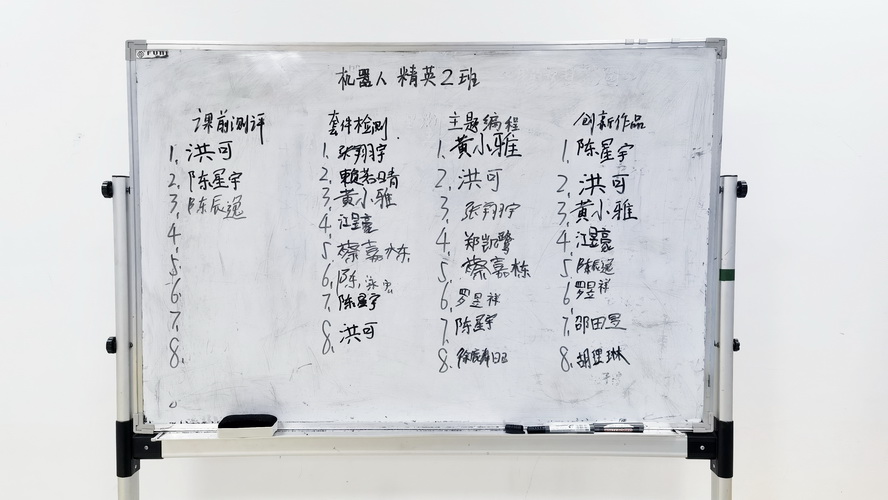 机器人 精英2班
课前测评
1. 洪可
2. 陈星宇
3. 陈辰逸
4.
5.
6.
7.
8.
套件检测
1. 张翔宇
2. 赖若晴
3. 黄小雅
4. 江昱豪
5. 蔡嘉栋
6. 陈
7. 陈星宇
8. 洪可
主题编程
1. 黄小雅
2. 洪可
3. 张翔宇
4. 郑凯鹭
5. 蔡嘉栋
6. 罗昱祥
7. 陈星宇
8.
创新作品
1. 陈星宇
2. 洪可
3. 黄小雅
4. 江昱豪
5. 陈辰逸
6. 罗昱祥
7. 邵田昱
8. 胡理琳